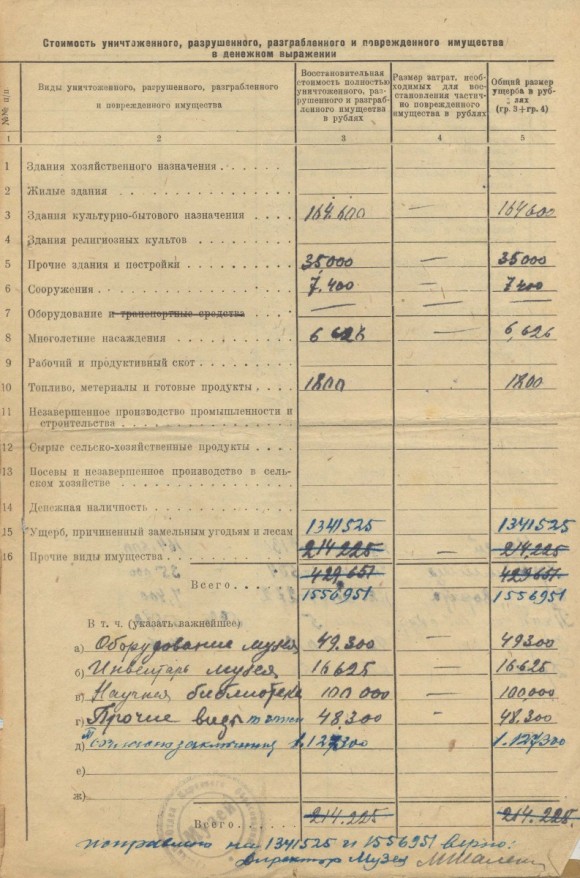 Стоимость уничтоженного, разрушенного, разграбленного и поврежденного имущества
в денежном выражении
№№ п/п
Виды уничтоженного, разрушенного, разграбленного
и поврежденного имущества
Восстановительная
стоимость полностью
уничтоженного, раз-
рушенного и разграб-
ленного имущества
в рублях
Размер затрат, необ-
ходимых для вос-
становления частич-
но поврежденного
имущества в рублях
Общий размер
ущерба в руб-
лях
(гр. 3+гр. 4)
1 2 3 4 5
1 Здания хозяйственного назначения
2 Жилые здания
3 Здания культурно-бытового назначения 164.600 — 164600
4 Здания религиозных культов
5 Прочие здания и постройки 35000 — 35000
6 Сооружения 7.400 — 7400
7 Оборудование и транспортные средства — — —
8 Многолетние насаждения 6626 — 6,626
9 Рабочий и продуктивный скот
10 Топливо, метериалы и готовые продукты 1800 1800
11 Незавершенное производство промышленности и
строительства
12 Сырые сельско-хозяйственные продукты
13 Посевы и незавершенное производство в сель-
ском хозяйстве
14 Денежная наличность
15 Ущерб, причиненный замельным угодьям и лесам
1341525 1341525
16 Прочие виды имущества 214.225 — 214.225
Всего 429.651 429651
1556951 1556951
В т. ч. (указать важнейшее)
а) Оборудование музея 49.300 — 49300
б) Инвентарь музея 16625 — 16.625
в) Научная библиотека 100000 — 100000
г) Прочие виды 48.300 — 48.300
д) 1.127300 1.127300
е)
ж)
Всего 214.225 214.225
Музей
на 1341525 и 1556951 верно:
Директор Музея